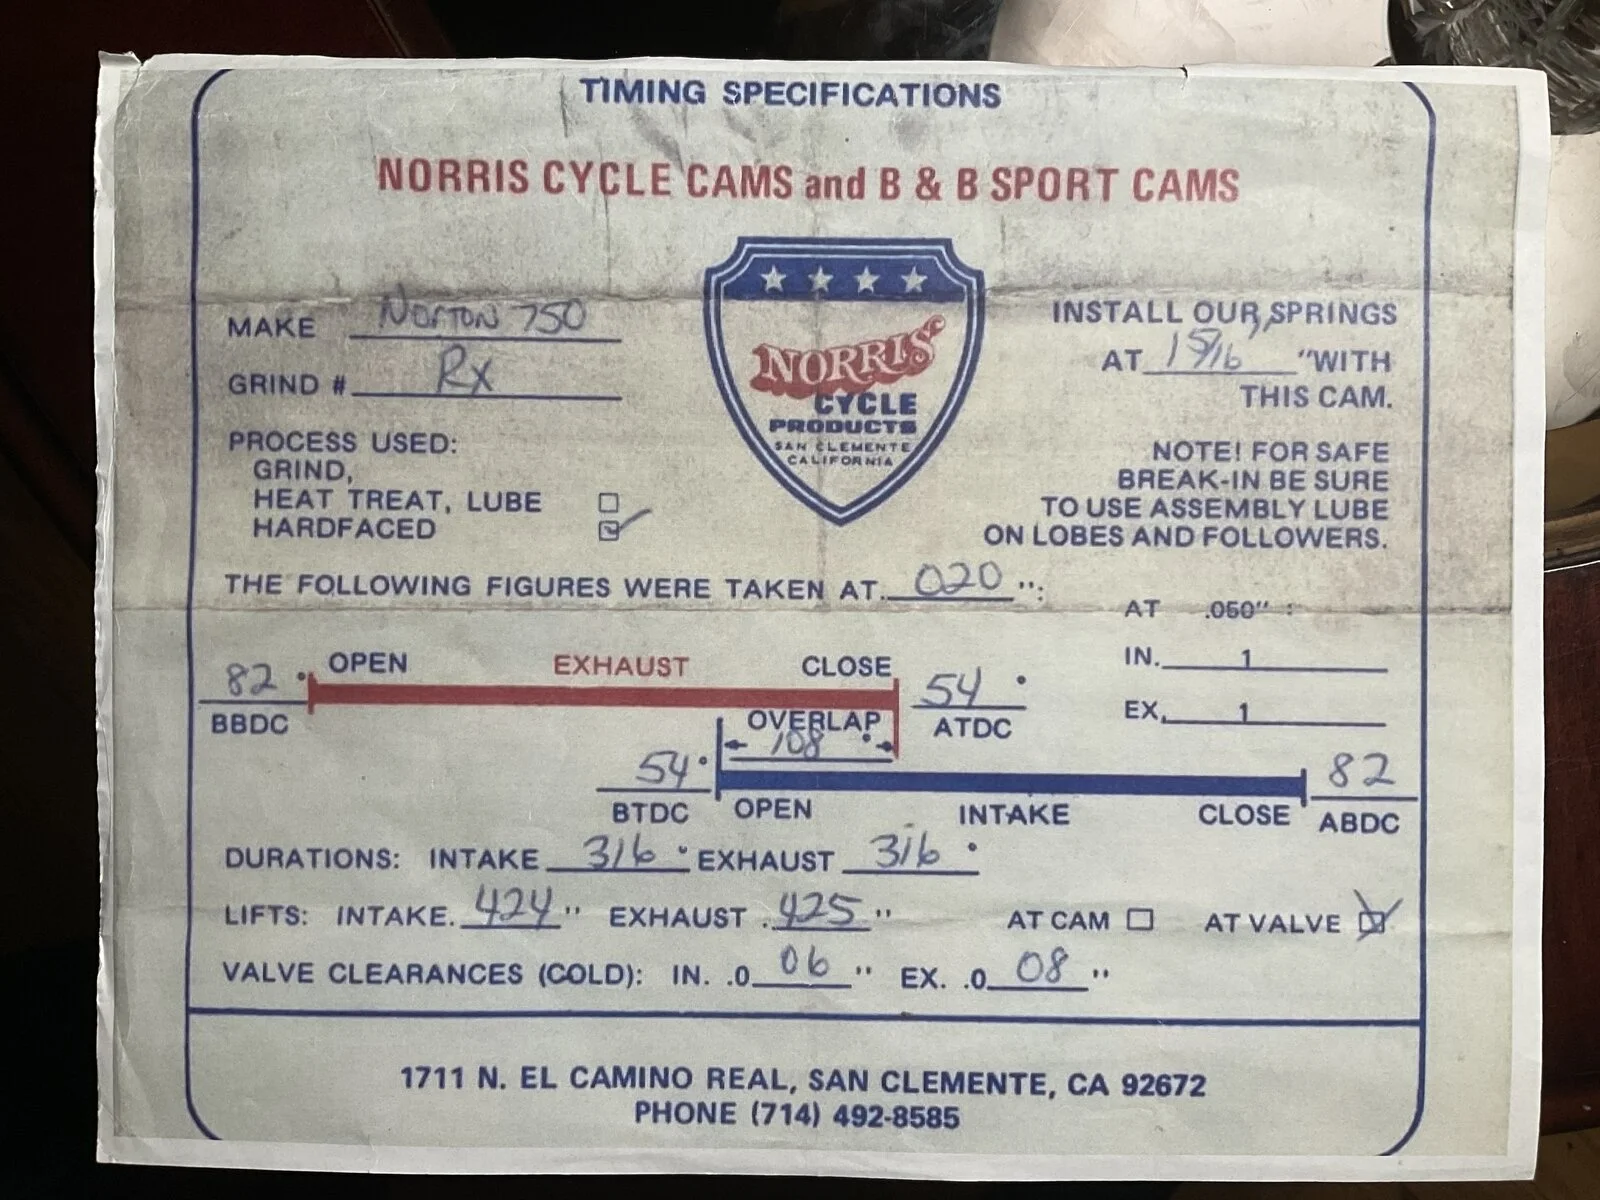 TIMING SPECIFICATIONS
NORRIS CYCLE CAMS and B & B SPORT CAMS
★ ★ ★ ★
NORRIS
CYCLE
PRODUCTS
SAN CLEMENTE
CALIFORNIA
MAKE Norton 750
GRIND # Rx
PROCESS USED:
GRIND,
HEAT TREAT, LUBE ☐
HARDFACED ☑
INSTALL OUR SPRINGS
AT 1 5/16 "WITH
THIS CAM.
NOTE! FOR SAFE
BREAK-IN BE SURE
TO USE ASSEMBLY LUBE
ON LOBES AND FOLLOWERS.
THE FOLLOWING FIGURES WERE TAKEN AT .020 ":
AT .050" :
IN. 1
EX. 1
82° OPEN EXHAUST CLOSE 54°
BBDC ATDC
OVERLAP
108°
54° 82
BTDC OPEN INTAKE CLOSE ABDC
DURATIONS: INTAKE 316° EXHAUST 316°
LIFTS: INTAKE .424" EXHAUST .425" AT CAM ☐ AT VALVE ☑
VALVE CLEARANCES (COLD): IN. .0 06" EX. .0 08"
1711 N. EL CAMINO REAL, SAN CLEMENTE, CA 92672
PHONE (714) 492-8585